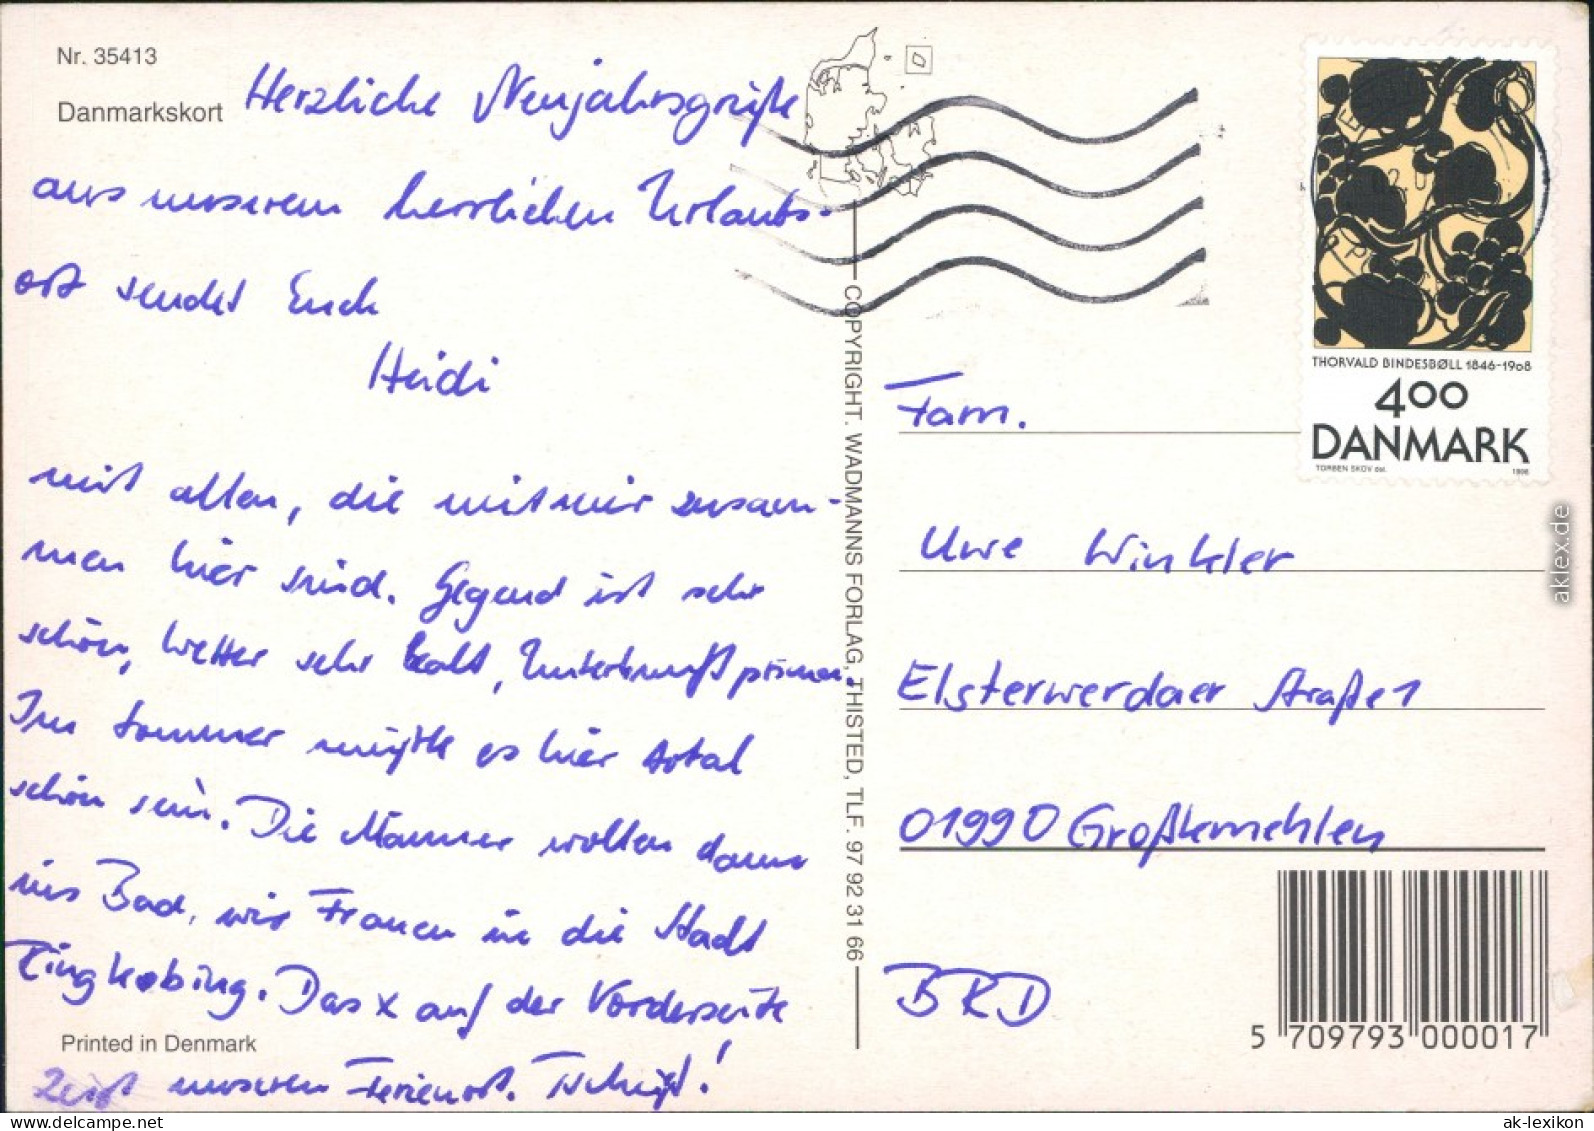 Nr. 35413
Danmarkskort
Herzliche Neujahrsgrüße
aus unserem herrlichen Urlaubs-
ort sendet Euch
Heidi
mit allen, die mit mir zusam-
men hier sind. Gegend ist sehr
schön, Wetter sehr kalt, Unterkunft prima.
Im Sommer müßte es hier total
schön sein. Die Männer wollen dann
ins Bad, wir Frauen in die Stadt
Ringkobing. Das x auf der Vorderseite
zeigt unseren Ferienort. Tschüß!
Printed in Denmark
COPYRIGHT. WADMANNS FORLAG, THISTED, TLF. 97 92 31 66
THORVALD BINDESBØLL 1846-1908
400
DANMARK
TORBEN SKOV del. 1996
Fam.
Uwe Winkler
Elsterwerdaer Straße 1
01990 Großkmehlen
BRD
5 709793 000017
aklex.de
www.delcampe.net
ak-lexikon